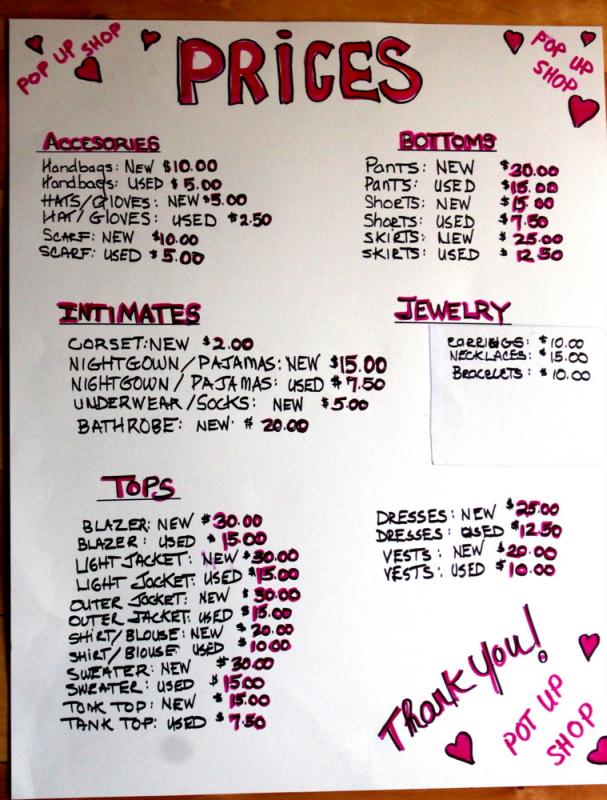 POP UP SHOP
PRICES
POP UP
SHOP
ACCESORIES
Handbags: NEW $10.00
Handbags: USED $5.00
HATS/GLOVES: NEW $5.00
HAT/GLOVES: USED $2.50
SCARF: NEW $10.00
SCARF: USED $5.00
BOTTOMS
PANTS: NEW $30.00
PANTS: USED $15.00
SHORTS: NEW $15.00
SHORTS: USED $7.50
SKIRTS: NEW $25.00
SKIRTS: USED $12.50
INTIMATES
CORSET: NEW $2.00
NIGHTGOWN/PAJAMAS: NEW $15.00
NIGHTGOWN/PAJAMAS: USED $7.50
UNDERWEAR/SOCKS: NEW $5.00
BATHROBE: NEW $20.00
JEWELRY
EARRINGS: $10.00
NECKLACES: $15.00
BRACELETS: $10.00
TOPS
BLAZER: NEW $30.00
BLAZER: USED $15.00
LIGHT JACKET: NEW $30.00
LIGHT JACKET: USED $15.00
OUTER JACKET: NEW $30.00
OUTER JACKET: USED $15.00
SHIRT/BLOUSE: NEW $20.00
SHIRT/BLOUSE USED $10.00
SWEATER: NEW $30.00
SWEATER: USED $15.00
TANK TOP: NEW $15.00
TANK TOP: USED $7.50
DRESSES: NEW $25.00
DRESSES: USED $12.50
VESTS: NEW $20.00
VESTS: USED $10.00
Thank You!
POT UP
SHOP